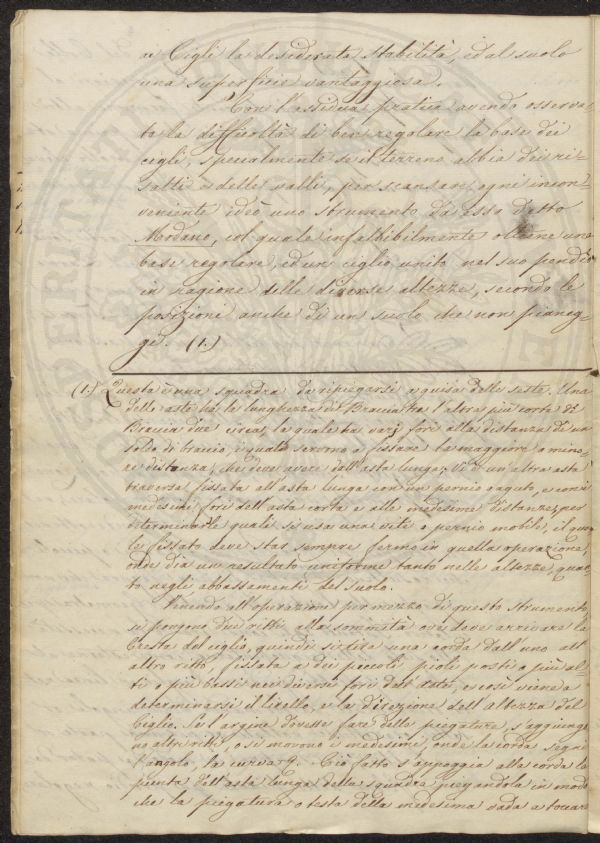 ai Cigli la desiderata stabilità, ed al suolo
una superficie vantaggiosa.
Con l'assidua pratica avendo osserva-
ta la difficoltà di ben regolare la base dei
cigli, specialmente se il terreno abbia dei ri-
salti e delle valli, per scansare ogni incon-
veniente ideò uno strumento da esso detto
Modano, col quale infallibilmente ottiene una
base regolare, ed un ciglio unito nel suo pendio
in ragione delle diverse altezze, secondo le
posizioni anche di un suolo che non pianeg-
gi. (1.)
(1.) Questa è una squadra da ripiegarsi a guisa delle seste. Una
delle aste ha la lunghezza di Braccia tre l'altra più corta di
Braccia due circa, la quale ha varj fori alla distanza di un
soldo di braccio, i quali servono a fissare la maggiore o mino-
re distanza, che deve avere dall'asta lunga. Vi è un'altra asta
traversa fissata all'asta lunga con un pernio aguto, e con i
medesimi fori dell'asta corta e alle medesime distanze, per
determinarle quali si usa una vite o pernio mobile, il qua-
le fissato deve star sempre fermo in quella operazione,
onde dia un resultato uniforme tanto nelle altezze, quan-
to negli abbassamenti del suolo.
Venendo all'operazione per mezzo di questo strumento
si pongono due ritti alla sommità ove deve arrivare la
Cresta del ciglio, quindi si tira una corda dall'uno all'
altro ritto, fissata a dei piccoli pioli posti o più al-
ti o più bassi nei diversi fori dati, e così viene a
determinarsi il livello, e la direzione dell'altezza del
Ciglio. Se l'argine dovesse fare delle piegature, s'aggiungo-
no altri ritti, o si movono i medesimi, onde la corda segni
l'angolo, la curva &. Ciò fatto s'appoggia alla corda la
punta dell'asta lunga della squadra piegandola in modo
che la piegatura o testa della medesima vada a toccare